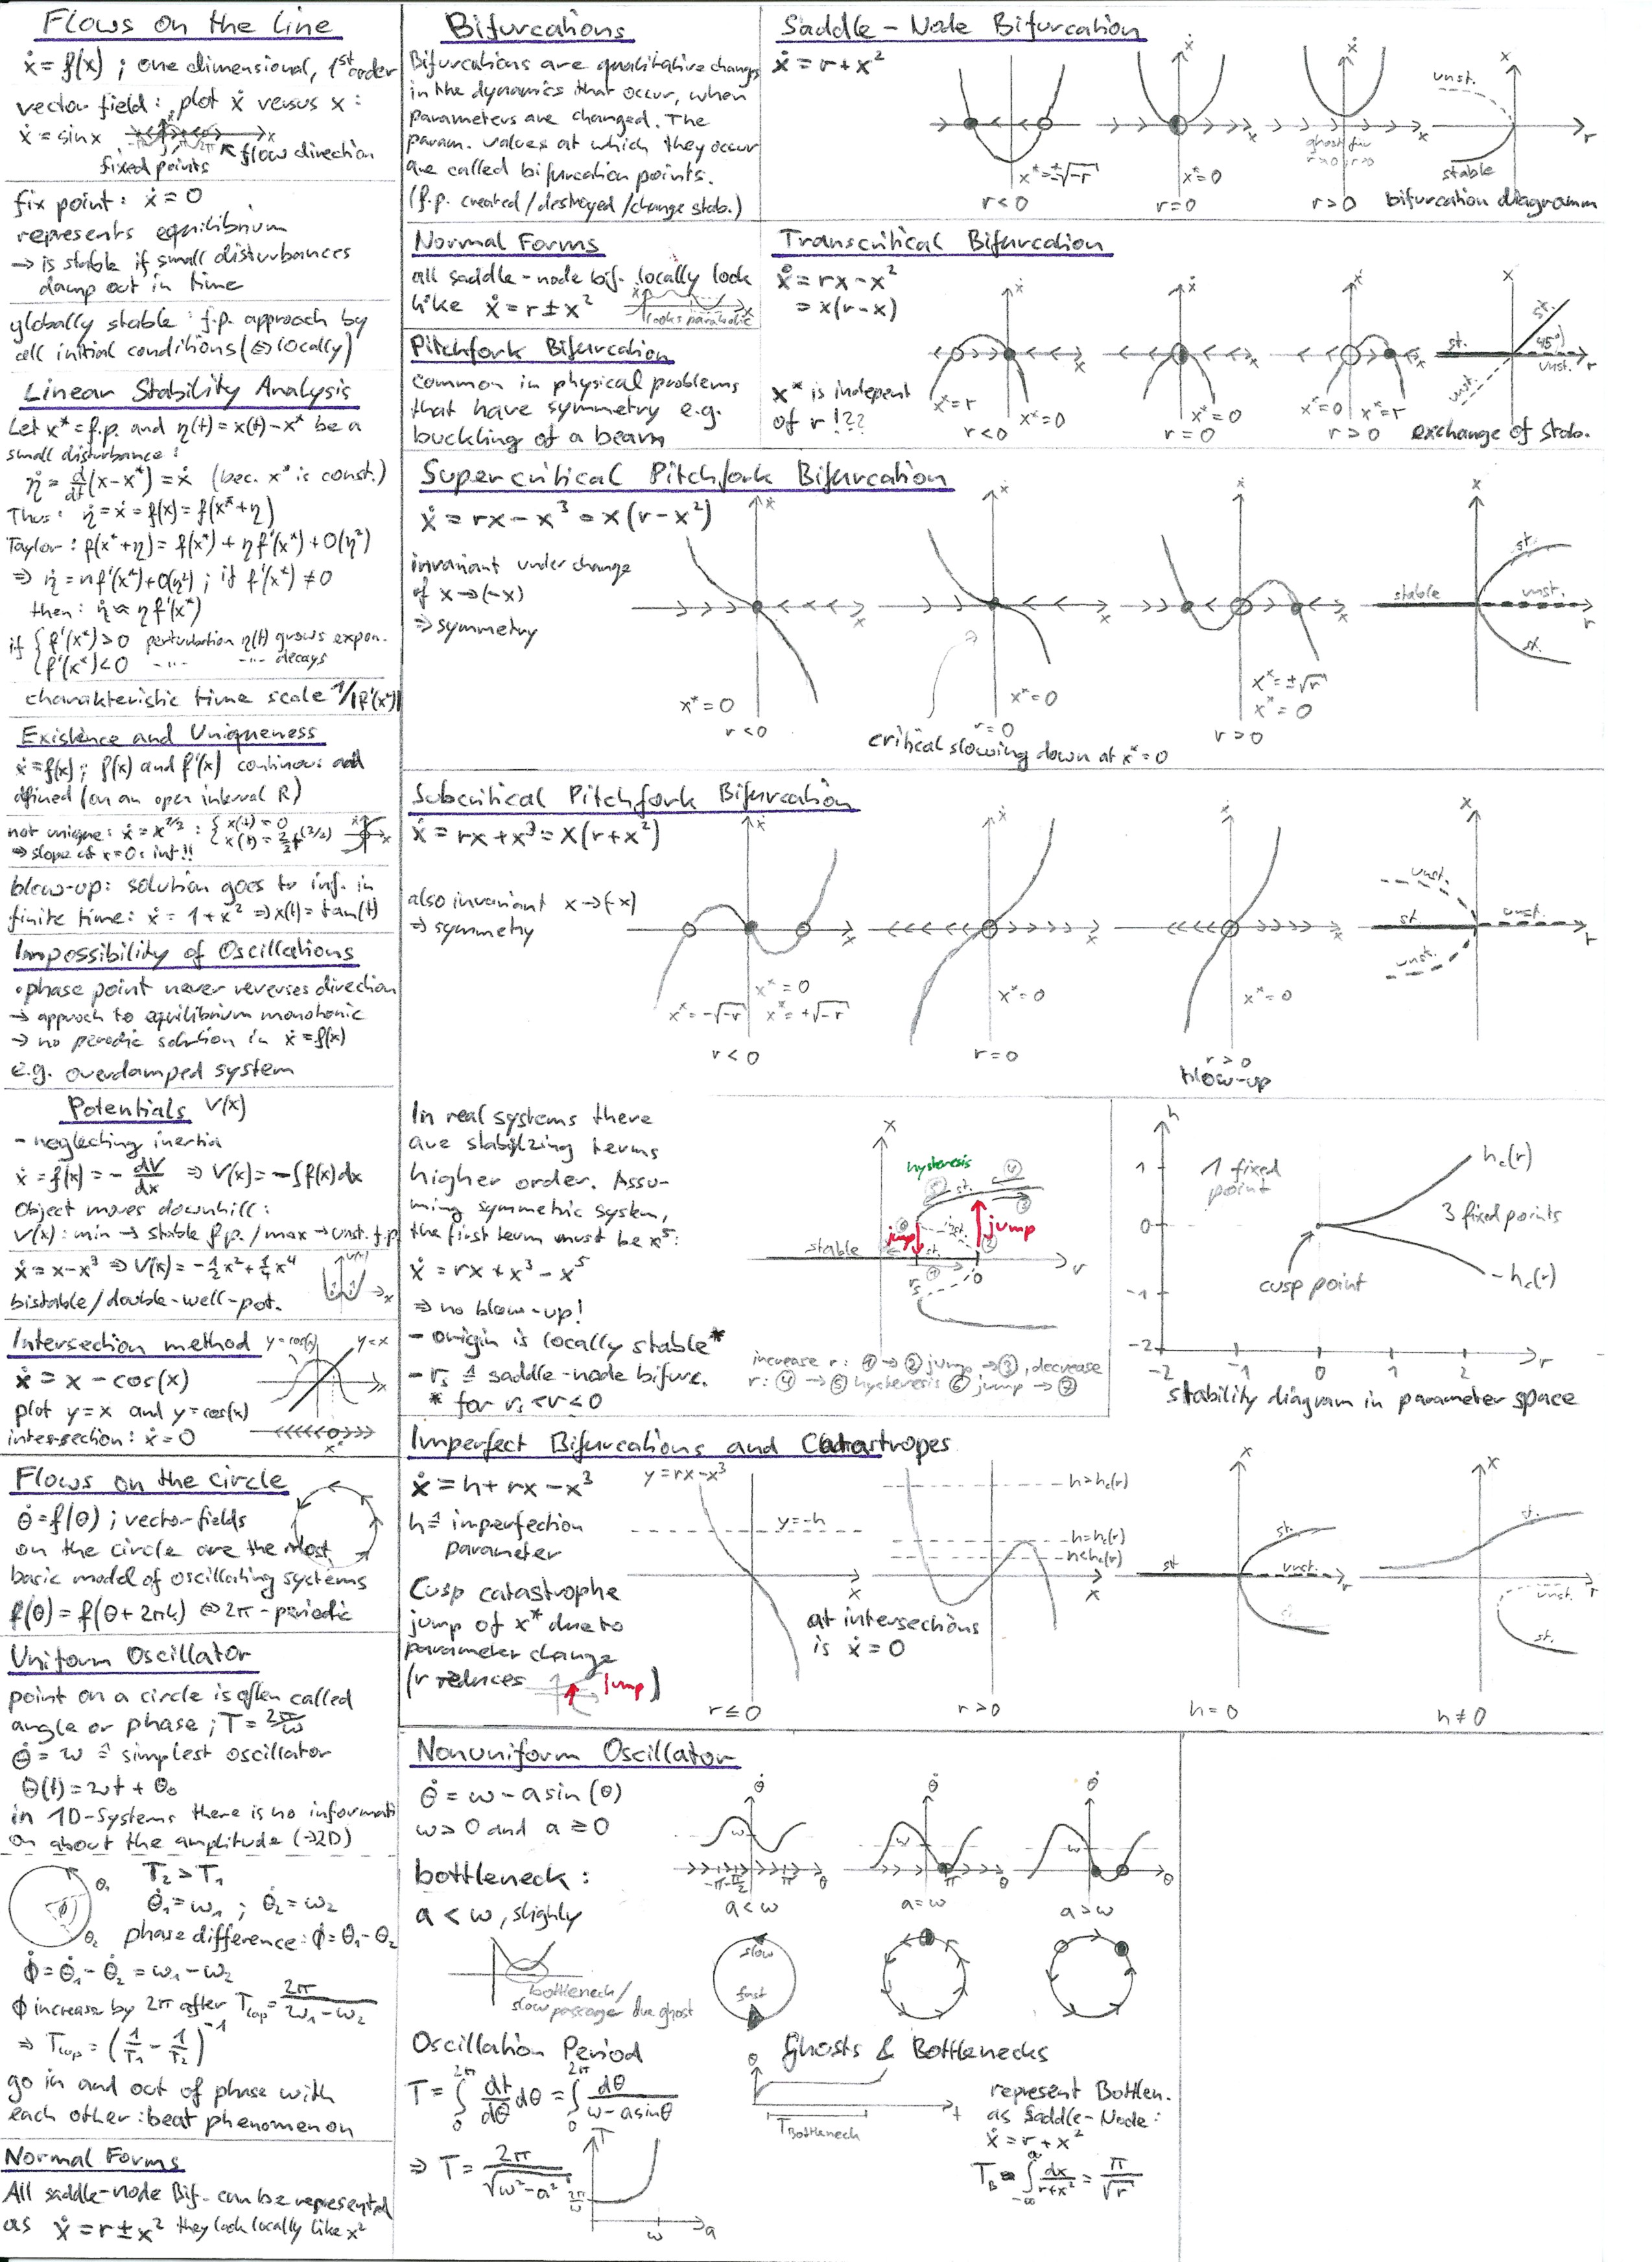 Flows on the line
ẋ = f(x) ; one dimensional, 1st order
vector field: plot ẋ versus x :
ẋ = sin x
flow direction
fixed points
fix point: ẋ = 0
represents equilibrium
→ is stable if small disturbances
damp out in time
globally stable : f.p. approach by
all initial conditions (⇔ locally)
Linear Stability Analysis
Let x* = f.p. and η(t) = x(t) - x* be a
small disturbance :
η̇ = d/dt (x - x*) = ẋ (bec. x* is const.)
Thus : η̇ = ẋ = f(x) = f(x* + η)
Taylor : f(x* + η) = f(x*) + η f'(x*) + O(η²)
⇒ η̇ = η f'(x*) + O(η²) ; if f'(x*) ≠ 0
then : η̇ ≈ η f'(x*)
if { f'(x*) > 0 perturbation η(t) grows expon.
{ f'(x*) < 0 -"- -"- decays
charakteristic time scale 1/|f'(x*)|
Existence and Uniqueness
ẋ = f(x) ; f(x) and f'(x) continous and
defined (on an open interval R)
not unique: ẋ = x^(2/3) : { x(t) = 0
⇒ slope at x=0 : inf !!
blow-up: solution goes to inf. in
finite time: ẋ = 1 + x² ⇒ x(t) = tan(t)
Impossibility of Oscillations
• phase point never reverses direction
→ approch to equilibrium monotonic
→ no periodic solution in ẋ = f(x)
e.g. overdamped system
Potentials V(x)
- neglecting inertia
ẋ = f(x) = - dV/dx ⇒ V(x) = -∫f(x)dx
Object moves downhill :
V(x) : min → stable f.p. / max → unst. f.p.
ẋ = x - x³ ⇒ V(x) = -1/2 x² + 1/4 x⁴
V(x)
x
bistable / double-well-pot.
Intersection method
y = cos(x)
y = x
ẋ = x - cos(x)
plot y = x and y = cos(x)
intersection : ẋ = 0
x*
Flows on the circle
θ̇ = f(θ) ; vector fields
on the circle are the most
basic model of oscillating systems
f(θ) = f(θ + 2πk) ⇔ 2π - periodic
Uniform Oscillator
point on a circle is often called
angle or phase ; T = 2π/ω
θ̇ = ω ≙ simplest oscillator
θ(t) = ωt + θ₀
in 1D-Systems there is no informati
on about the amplitude (→2D)
T₂ > T₁
θ₁
θ̇₁ = ω₁ ; θ̇₂ = ω₂
θ₂
phase difference : ϕ = θ₁ - θ₂
ϕ̇ = θ̇₁ - θ̇₂ = ω₁ - ω₂
ϕ increase by 2π after T_lap = 2π/(ω₁ - ω₂)
⇒ T_lap = (1/T₁ - 1/T₂)⁻¹
go in and out of phase with
each other : beat phenomenon
Normal Forms
All saddle-node Bif. can be represented
as ẋ = r ± x² they look locally like x²
Bifurcations
Bifurcations are qualitative changes
in the dynamics that occur, when
parameters are changed. The
param. values at which they occur
are called bifurcation points.
(f.p. created / destroyed / change stab.)
Normal Forms
all saddle-node bif. locally look
like ẋ = r ± x²
looks parabolic
Pitchfork Bifurcation
common in physical problems
that have symmetry e.g.
buckling of a beam
Saddle - Node Bifurcation
ẋ = r + x²
x* = ±√-r
r < 0
x* = 0
r = 0
ghost
r > 0
unst.
stable
bifurcation diagramm
Transcritical Bifurcation
ẋ = rx - x²
= x(r - x)
x* is indepent
of r !??
x* = r
x* = 0
r < 0
x* = 0
r = 0
x* = 0
x* = r
r > 0
st.
st.
45°
unst.
unst.
exchange of Stab.
Supercritical Pitchfork Bifurcation
ẋ = rx - x³ = x(r - x²)
invariant under change
of x → (-x)
⇒ symmetry
x* = 0
r < 0
x* = 0
r = 0
critical slowing down at x* = 0
x* = ±√r
x* = 0
r > 0
stable
st.
unst.
st.
Subcritical Pitchfork Bifurcation
ẋ = rx + x³ = x(r + x²)
also invariant x → (-x)
⇒ symmetry
x* = 0
x* = -√-r
x* = +√-r
r < 0
x* = 0
r = 0
x* = 0
r > 0
blow-up
unst.
st.
unst.
unst.
In real systems there
are stabilzing terms
higher order. Assu-
ming symmetric system,
the first term must be x⁵ :
ẋ = rx + x³ - x⁵
⇒ no blow-up!
- origin is locally stable*
- rs ≙ saddle-node bifurc.
* for rs < r < 0
hysteresis
st.
jump
jump
stable
st.
rs
0
increase r : ① → ② jump → ③, decrease
r : ④ → ⑤ hysteresis ⑥ jump → ⑦
h
1
0
-1
-2
1 fixed
point
hc(r)
3 fixed points
-hc(r)
cusp point
-2 -1 0 1 2 r
stability diagram in parameter space
Imperfect Bifurcations and Catastropes
ẋ = h + rx - x³
h ≙ imperfection
parameter
Cusp catastrophe
jump of x* due to
parameter change
(r reduces
jump)
y = rx - x³
y = -h
x
r ≤ 0
h > hc(r)
h = hc(r)
h < hc(r)
x
at intersections
is ẋ = 0
r > 0
st
st.
unst.
h = 0
st.
unst.
st.
h ≠ 0
Nonuniform Oscillator
θ̇ = ω - a sin(θ)
ω > 0 and a ≥ 0
bottleneck :
a < ω, slighly
bottleneck /
slow passage due ghost
a < ω
a = ω
a > ω
slow
fast
Oscillation Period
T = ∫₀^2π dt/dθ dθ = ∫₀^2π dθ/(ω - a sinθ)
⇒ T = 2π/√(ω² - a²)
T
2π/ω
ω
a
Ghosts & Bottlenecks
θ
t
T Bottleneck
represent Bottlen.
as Saddle-Node :
ẋ = r + x²
T_B = ∫ dx/(r + x²) = π/√r